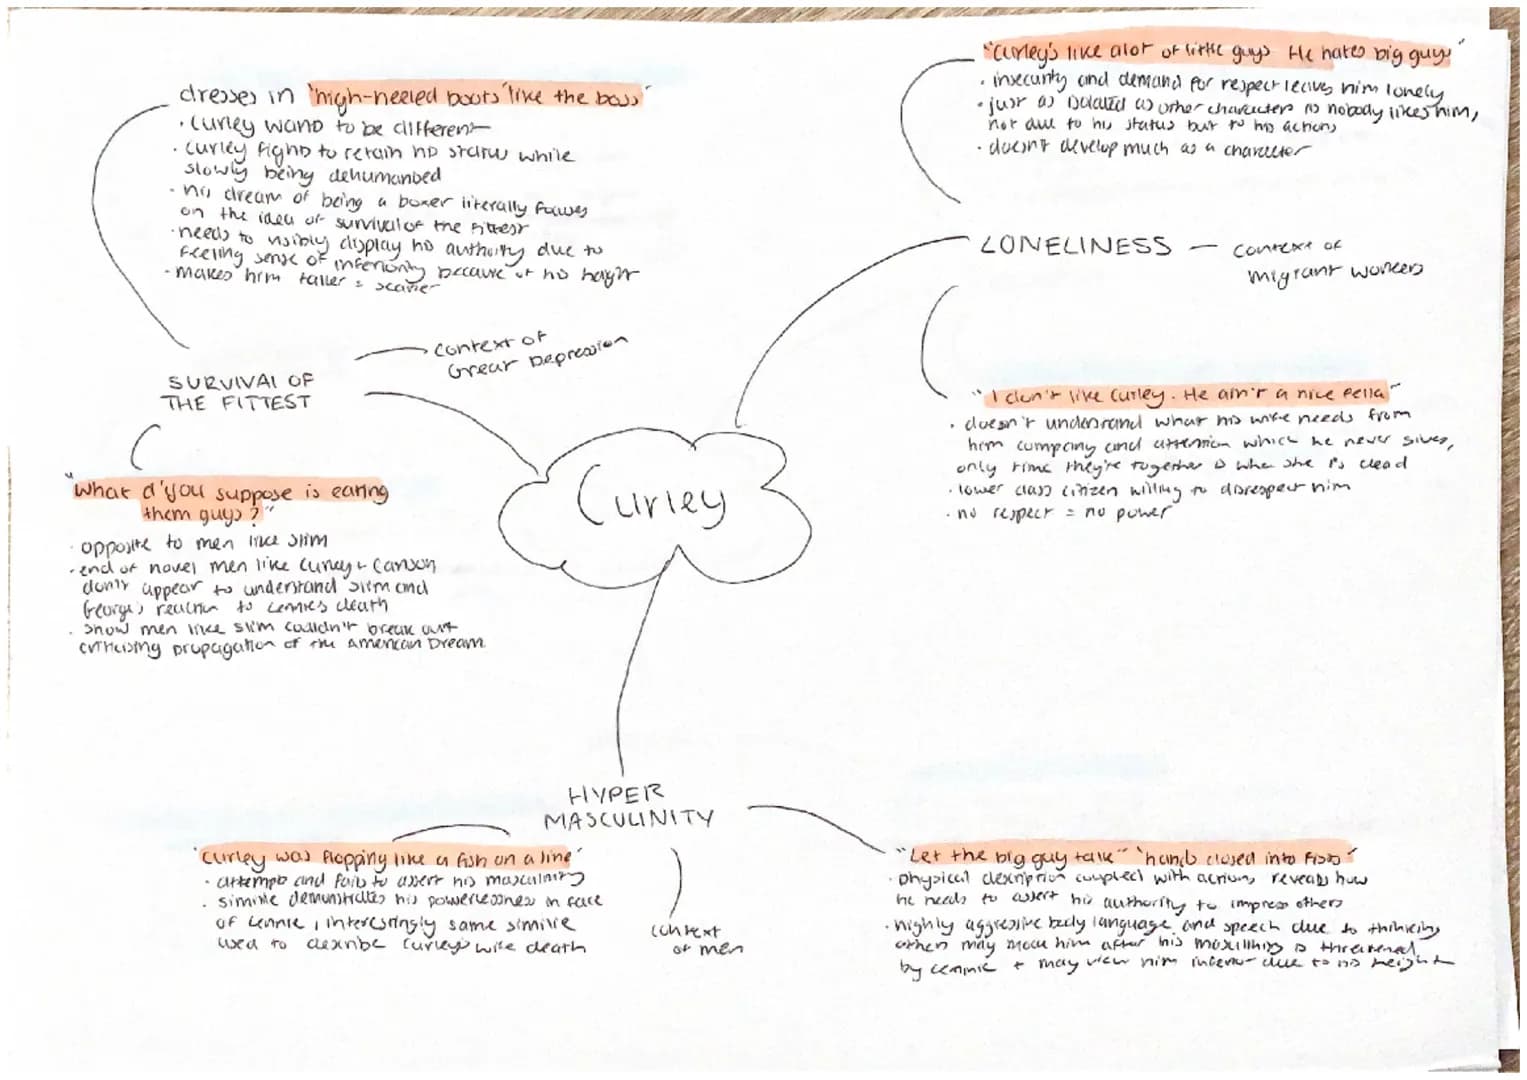 dresses in 'high-heeled boots' like the boss'
· Curley wants to be different
· Curley fights to retain his status while
slowly being dehumanised
· his dream of being a boxer literally focuses
on the idea of survival of the fittest
· needs to visibly display his authority due to
feeling sense of inferiority because of his height
· makes him taller = scarier
SURVIVAL OF
THE FITTEST
context of
Great Depression
"what d'you suppose is eating
them guys?"
· opposite to men like Slim
· end of novel men like Curley + Carlson
don't appear to understand Slim and
George's reaction to Lennies death
· show men like Slim couldn't break out
criticising propagation of the American Dream
Curley
"Curley's like alot of little guys He hates big guys"
· insecurity and demand for respect leaves him lonely
· just as isolated as other characters as nobody likes him,
not due to his status but to his actions
· doesn't develop much as a character
LONELINESS — context of
migrant workers
"I don't like Curley. He ain't a nice fella"
· doesn't understand what his wife needs from
him company and attention which he never gives,
only time they're together is when she is dead
· lower class citizen willing to disrespect him
· no respect = no power
HYPER
MASCULINITY
'Curley was flopping like a fish on a line'
· attempts and fails to assert his masculinity
· simile demonstrates his powerlessness in face
of Lennie, interestingly same simile
used to describe Curley's wife death
context
of men
"Let the big guy talk" 'hands closed into fists'
· physical description coupled with actions reveals how
he needs to assert his authority to impress others
· highly aggressive body language and speech due to thinking
others may mock him after his masculinity is threatened
by Lennie + may view him inferior due to his height